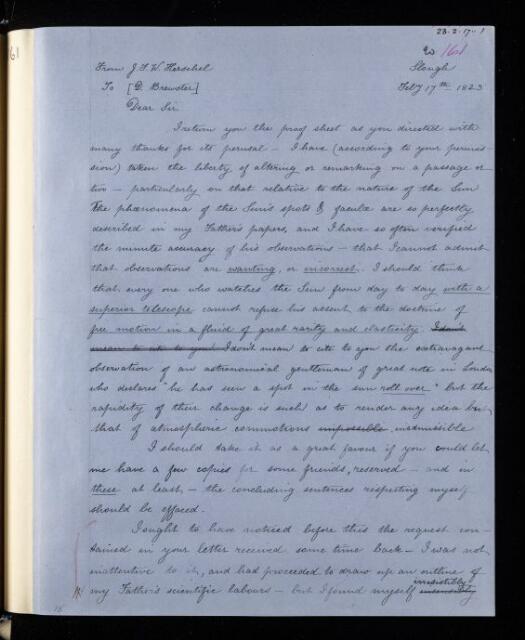 23-2-17-1
161
20 161
From J F. W. Herschel Slough
To [D. Brewster] Feby 17th 1823
Dear Sir
I return you the proof sheet as you directed with
many thanks for its perusal – I have (according to your permis-
sion) taken the liberty of altering or remarking on a passage or
two – particularly on that relative to the nature of the Sun
The phænomena of the Sun's spots & faculæ are so perfectly
described in my Father's papers, and I have so often verified
the minute accuracy of his observations – that I cannot admit
that observations are wanting, or incorrect. I should think
that every one who watches the Sun from day to day with a
superior telescope cannot refuse his assent to the doctrine of
free motion in a fluid of great rarity and elasticity I don't
mean to cite to you I don't mean to cite to you the extravagant
observation of an astronomical gentleman of great note in London
who declares "he has seen a spot in the sun roll over" but the
rapidity of their change is such as to render any idea but
that of atmospheric commotions impossible inadmissible
I should take it as a great favour if you could let
me have a few copies for some friends, reserved – and in
these at least, – the concluding sentences respecting myself
should be effaced.
I ought to have noticed before this the request con-
tained in your letter received some time back – I was not
inattentive to it, and had proceeded to draw up an outline of
my Father's scientific labours – but I found myself irresistibly